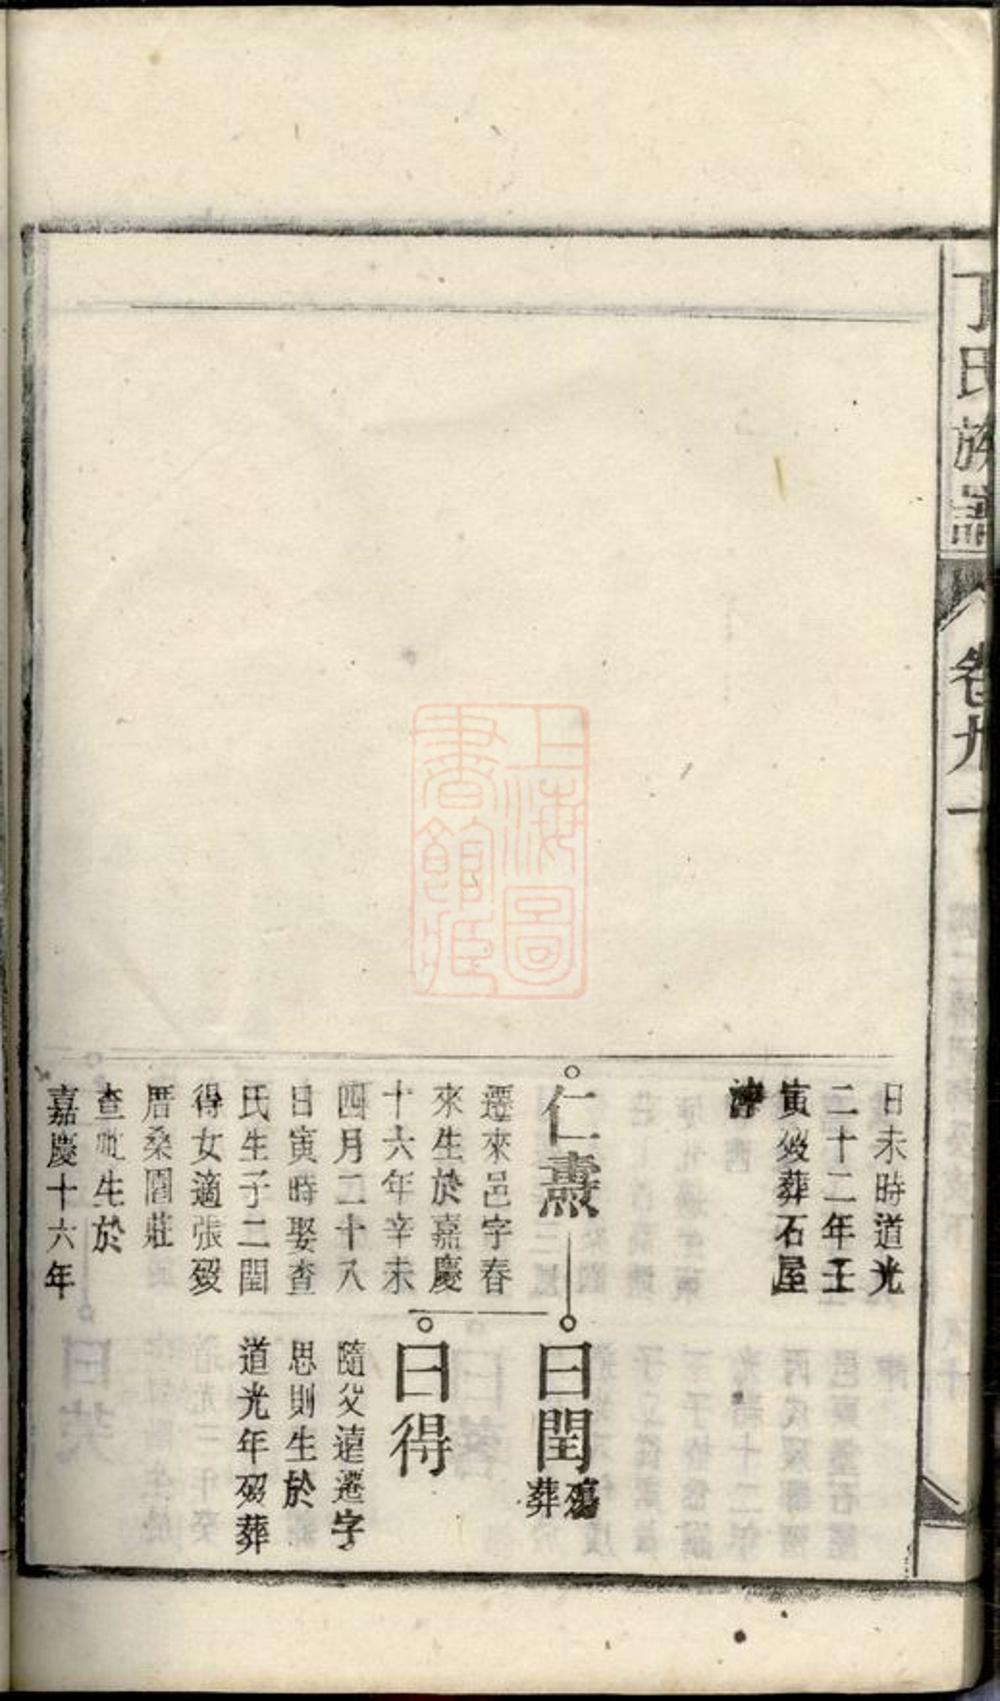 丁氏族譜
卷九
日未時道光
二十二年壬
寅歿葬石屋
仁燾
遷來邑字春
來生於嘉慶
十六年辛未
四月二十八
日寅時娶查
氏生子二閏
得女適張歿
厝桑園莊
查氏生於
嘉慶十六年
曰閏
殤葬
曰得
隨父遠遷字
思則生於
道光年歿葬
上海圖書館藏